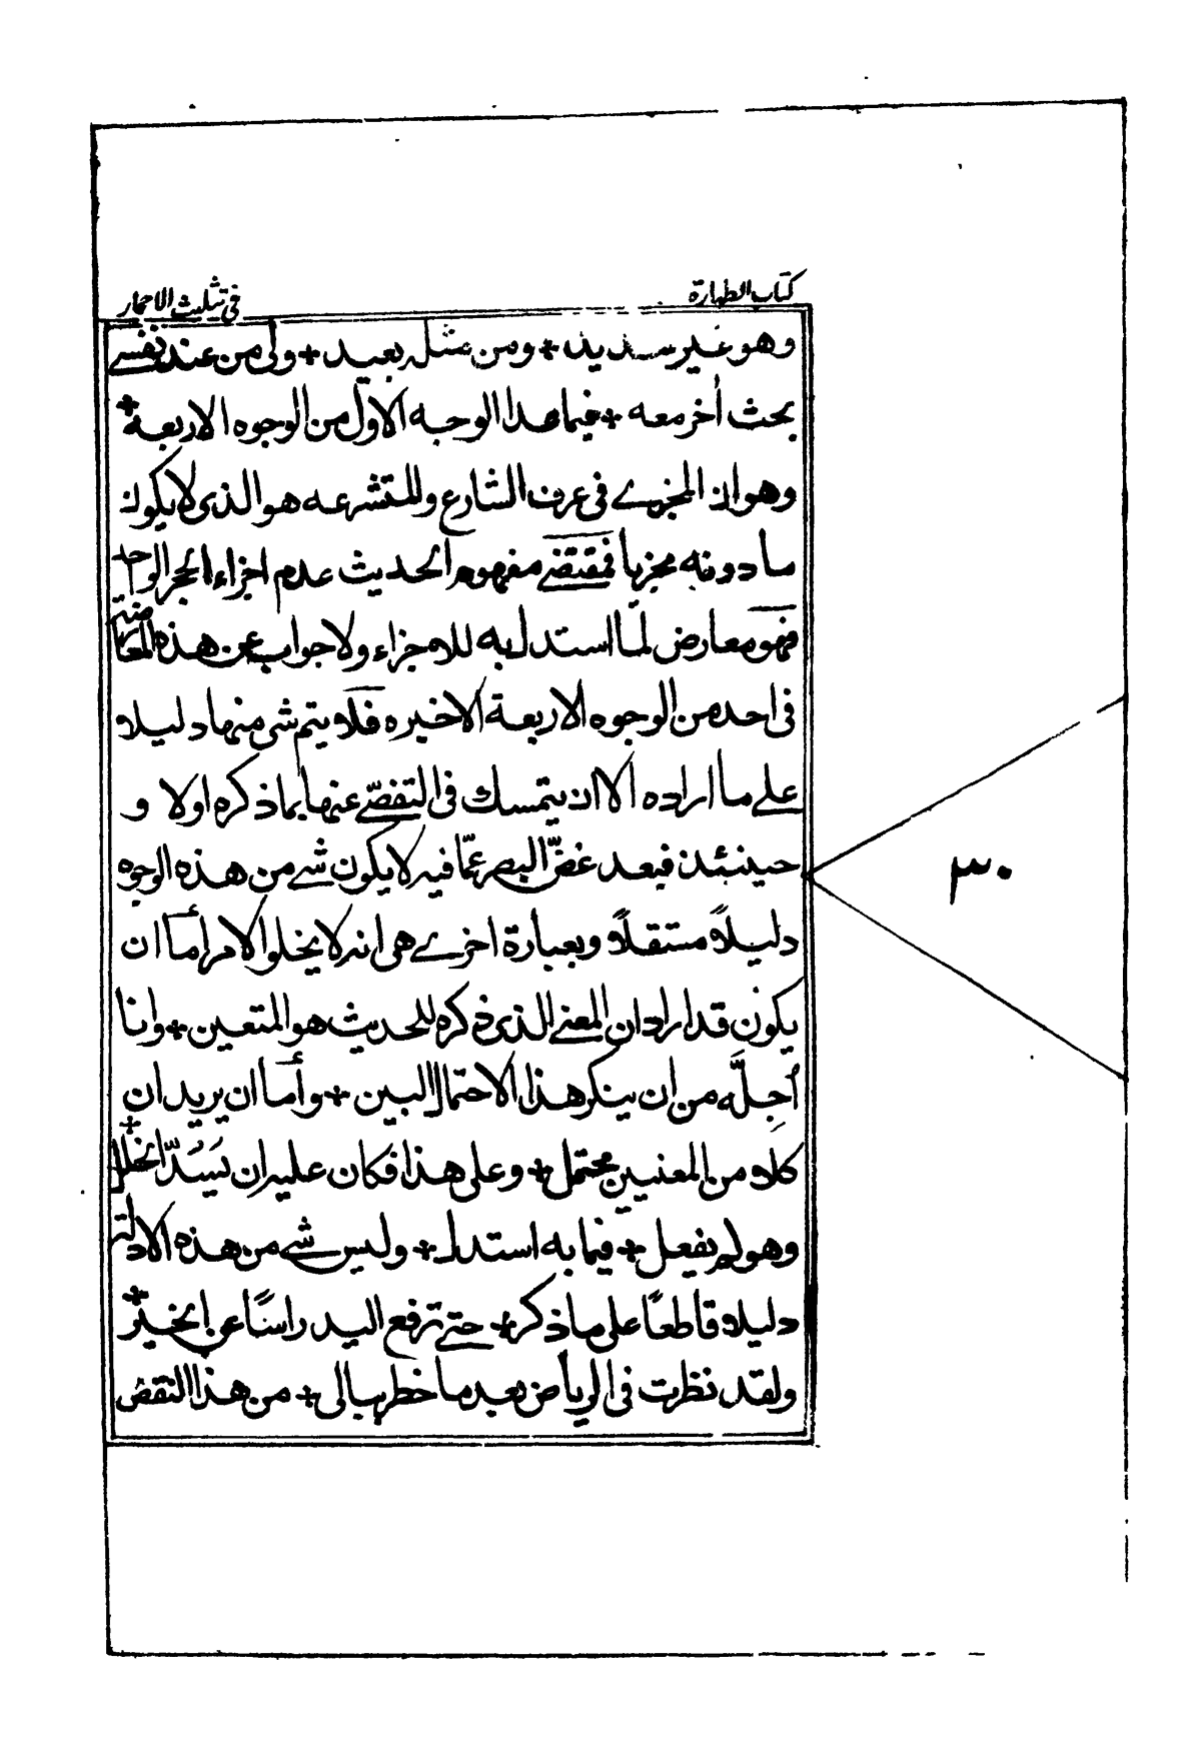 كتاب الطهارة
في تثليث الاحجار
وهو غير سديد + ومن مثله بعيد + ولى من عند نفسي
بحث أخر معه + فيما هذا الوجه الاول من الوجوه الاربعة +
وهو ان المجزي في عرف الشارع وللمتشرعه هو الذى لا يكون
ما دونه مجزيا فمقتضي مفهوم الحديث عدم اجزاء الحجر الواحد
فهو معارض لمّا استدل به للاجزاء ولا جواب عن هذه المعارضة
فى احد من الوجوه الاربعة الاخيره فلا يتم شى منها دليلا
علي ما اراده الا ان يتمسك فى التفصّي عنها بما ذكره اولا و
حينئذ فبعد غضّ البصر عمّا فيه لا يكون شي من هذه الوجوه
دليلاً مستقلاً وبعبارة اخري هى انه لا يخلو الامر أما ان
يكون قد اراد ان المعني الذى ذكره للحديث هو المتعين + وانا
أجِلّه من ان ينكر هذا الاحتمال البين + وأما ان يريد ان
كلا من المعنيين محتمل + وعلى هذا فكان عليه ان يَسُدّ الخلل +
وهو لم يفعل + فيما به استدل + وليس شي من هذه الادلة
دليلا قاطعًا على ما ذكر + حتي ترفع اليد راسًا عن الخبر +
ولقد نظرت فى الرياض بعد ما خطر ببالى + من هذا النقض
٣٠